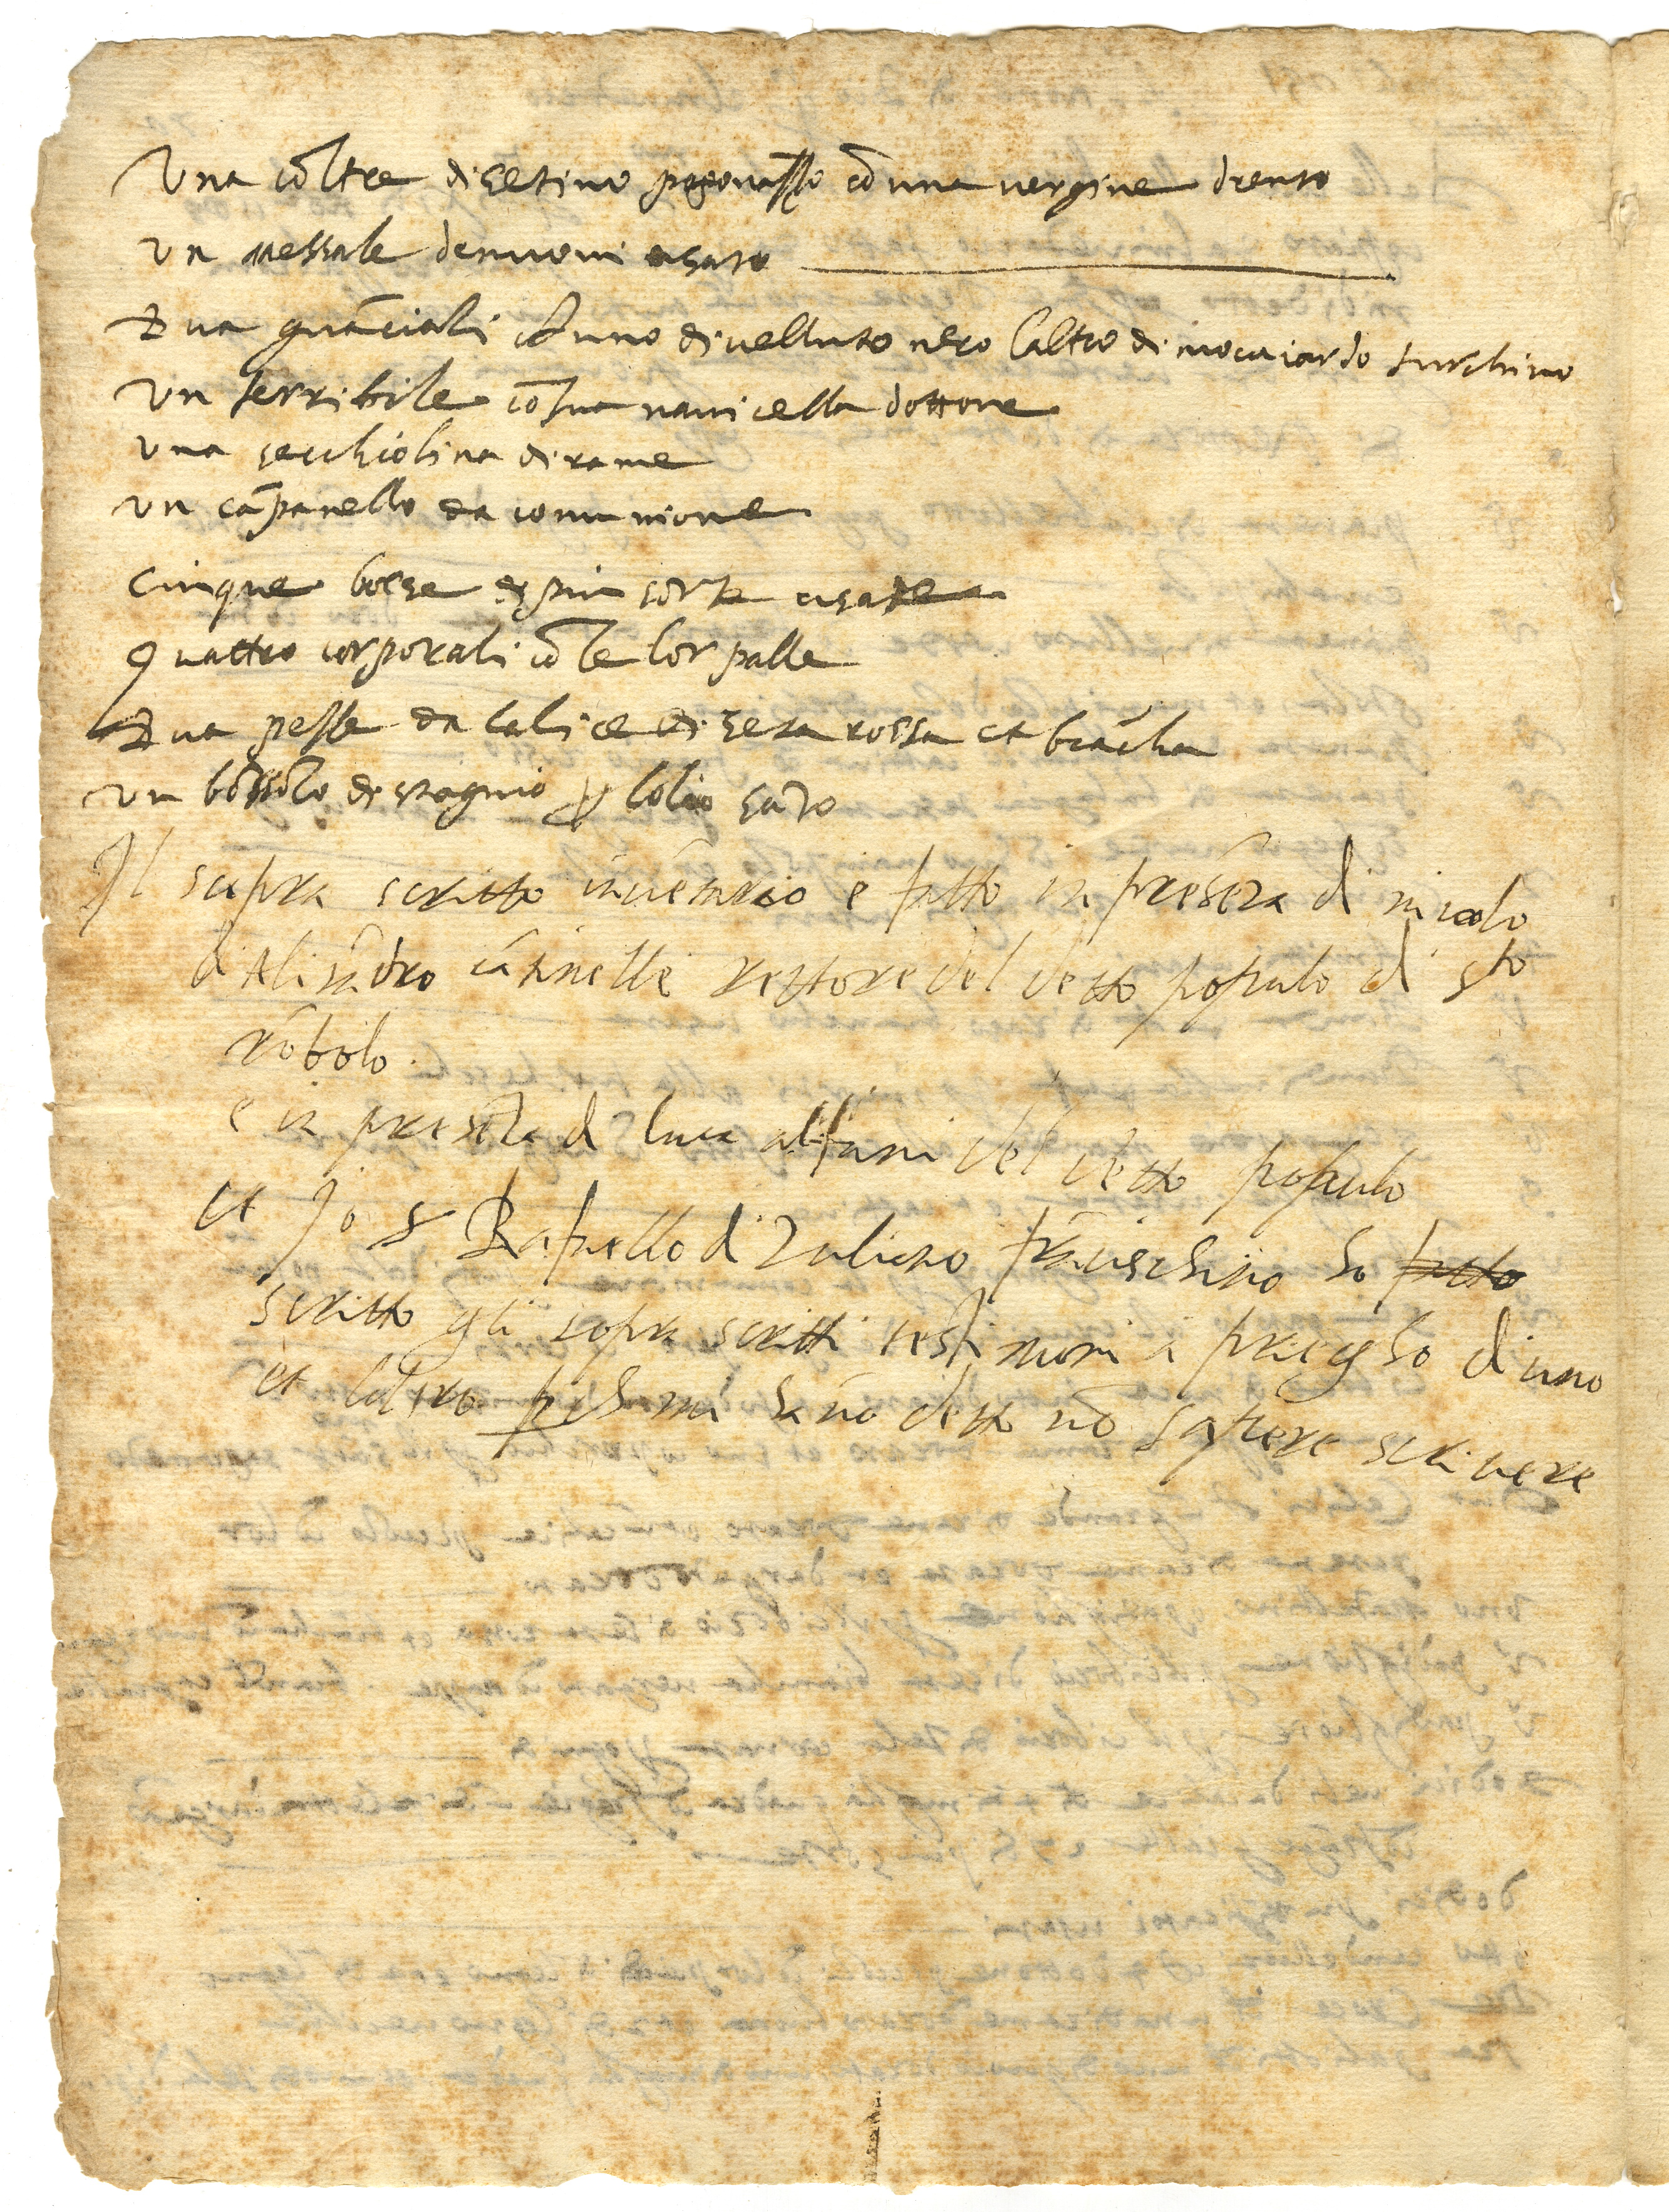 Una cõltre di setino pagonasso cõ una vergine drento
Un messale de nuovi usato
Dua guãciali cõ uno di velluto nero laltro di mocaiardo turchino
Un terribile cõ sua navicella dottone
Una secchiolina di rame
Un cãpanello da comunione
Cinque borse di piu sorte usate
Quattro corporali cõ le lor palle
Dua pesse da calice di seta rossa et biãcha
Un bossolo di stagnio p lolio sãto
Il supra scritto invẽtario e fatto in presẽza di nicolo
d Alisãdro cã tinelli rettore del detto populo di sto
rõbolo.
e in presẽza di luca alfani del detto populo
et Jo s Rafaello di Zuliano frãceschino ho fatto
scritto gli sopra scritti testimoni a priegho di uno
et laltro p che mi hãno ditto nõ sapere scrivere